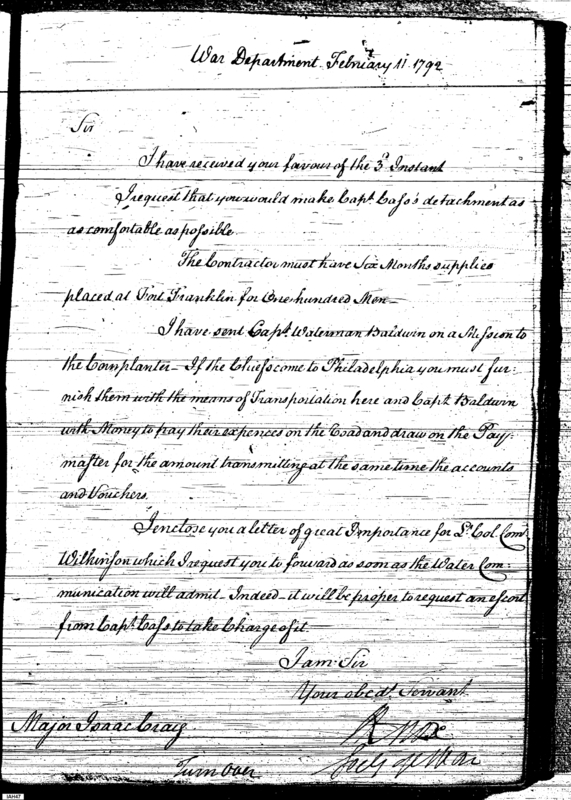 War Department February 11. 1792
Sir
I have received your favour of the 3d. Instant
I request that you would make Capt. Cass's detachment as
as comfortable as possible
The Contractor must have Six Months supplies
placed at Fort Franklin for One hundred Men—
I have sent Capt. Waterman Baldwin on a Mission to
the Cornplanter— If the Chiefs come to Philadelphia you must fur-
nish them with the means of Transportation here and Capt. Baldwin
with Money to pay their expences on the Road and draw on the Pay-
master for the amount transmitting at the same time the accounts
and Vouchers.
I enclose you a letter of great Importance for Lt. Col. Com
Wilkinson which I request you to forward as soon as the Water Com-
munication will admit. Indeed it will be proper to request an escort
from Capt. Cass to take Charge of it.
I am Sir
Your obedt. Servant
Major Isaac Craig
H Knox
Secy of War
Turn Over
IAH47